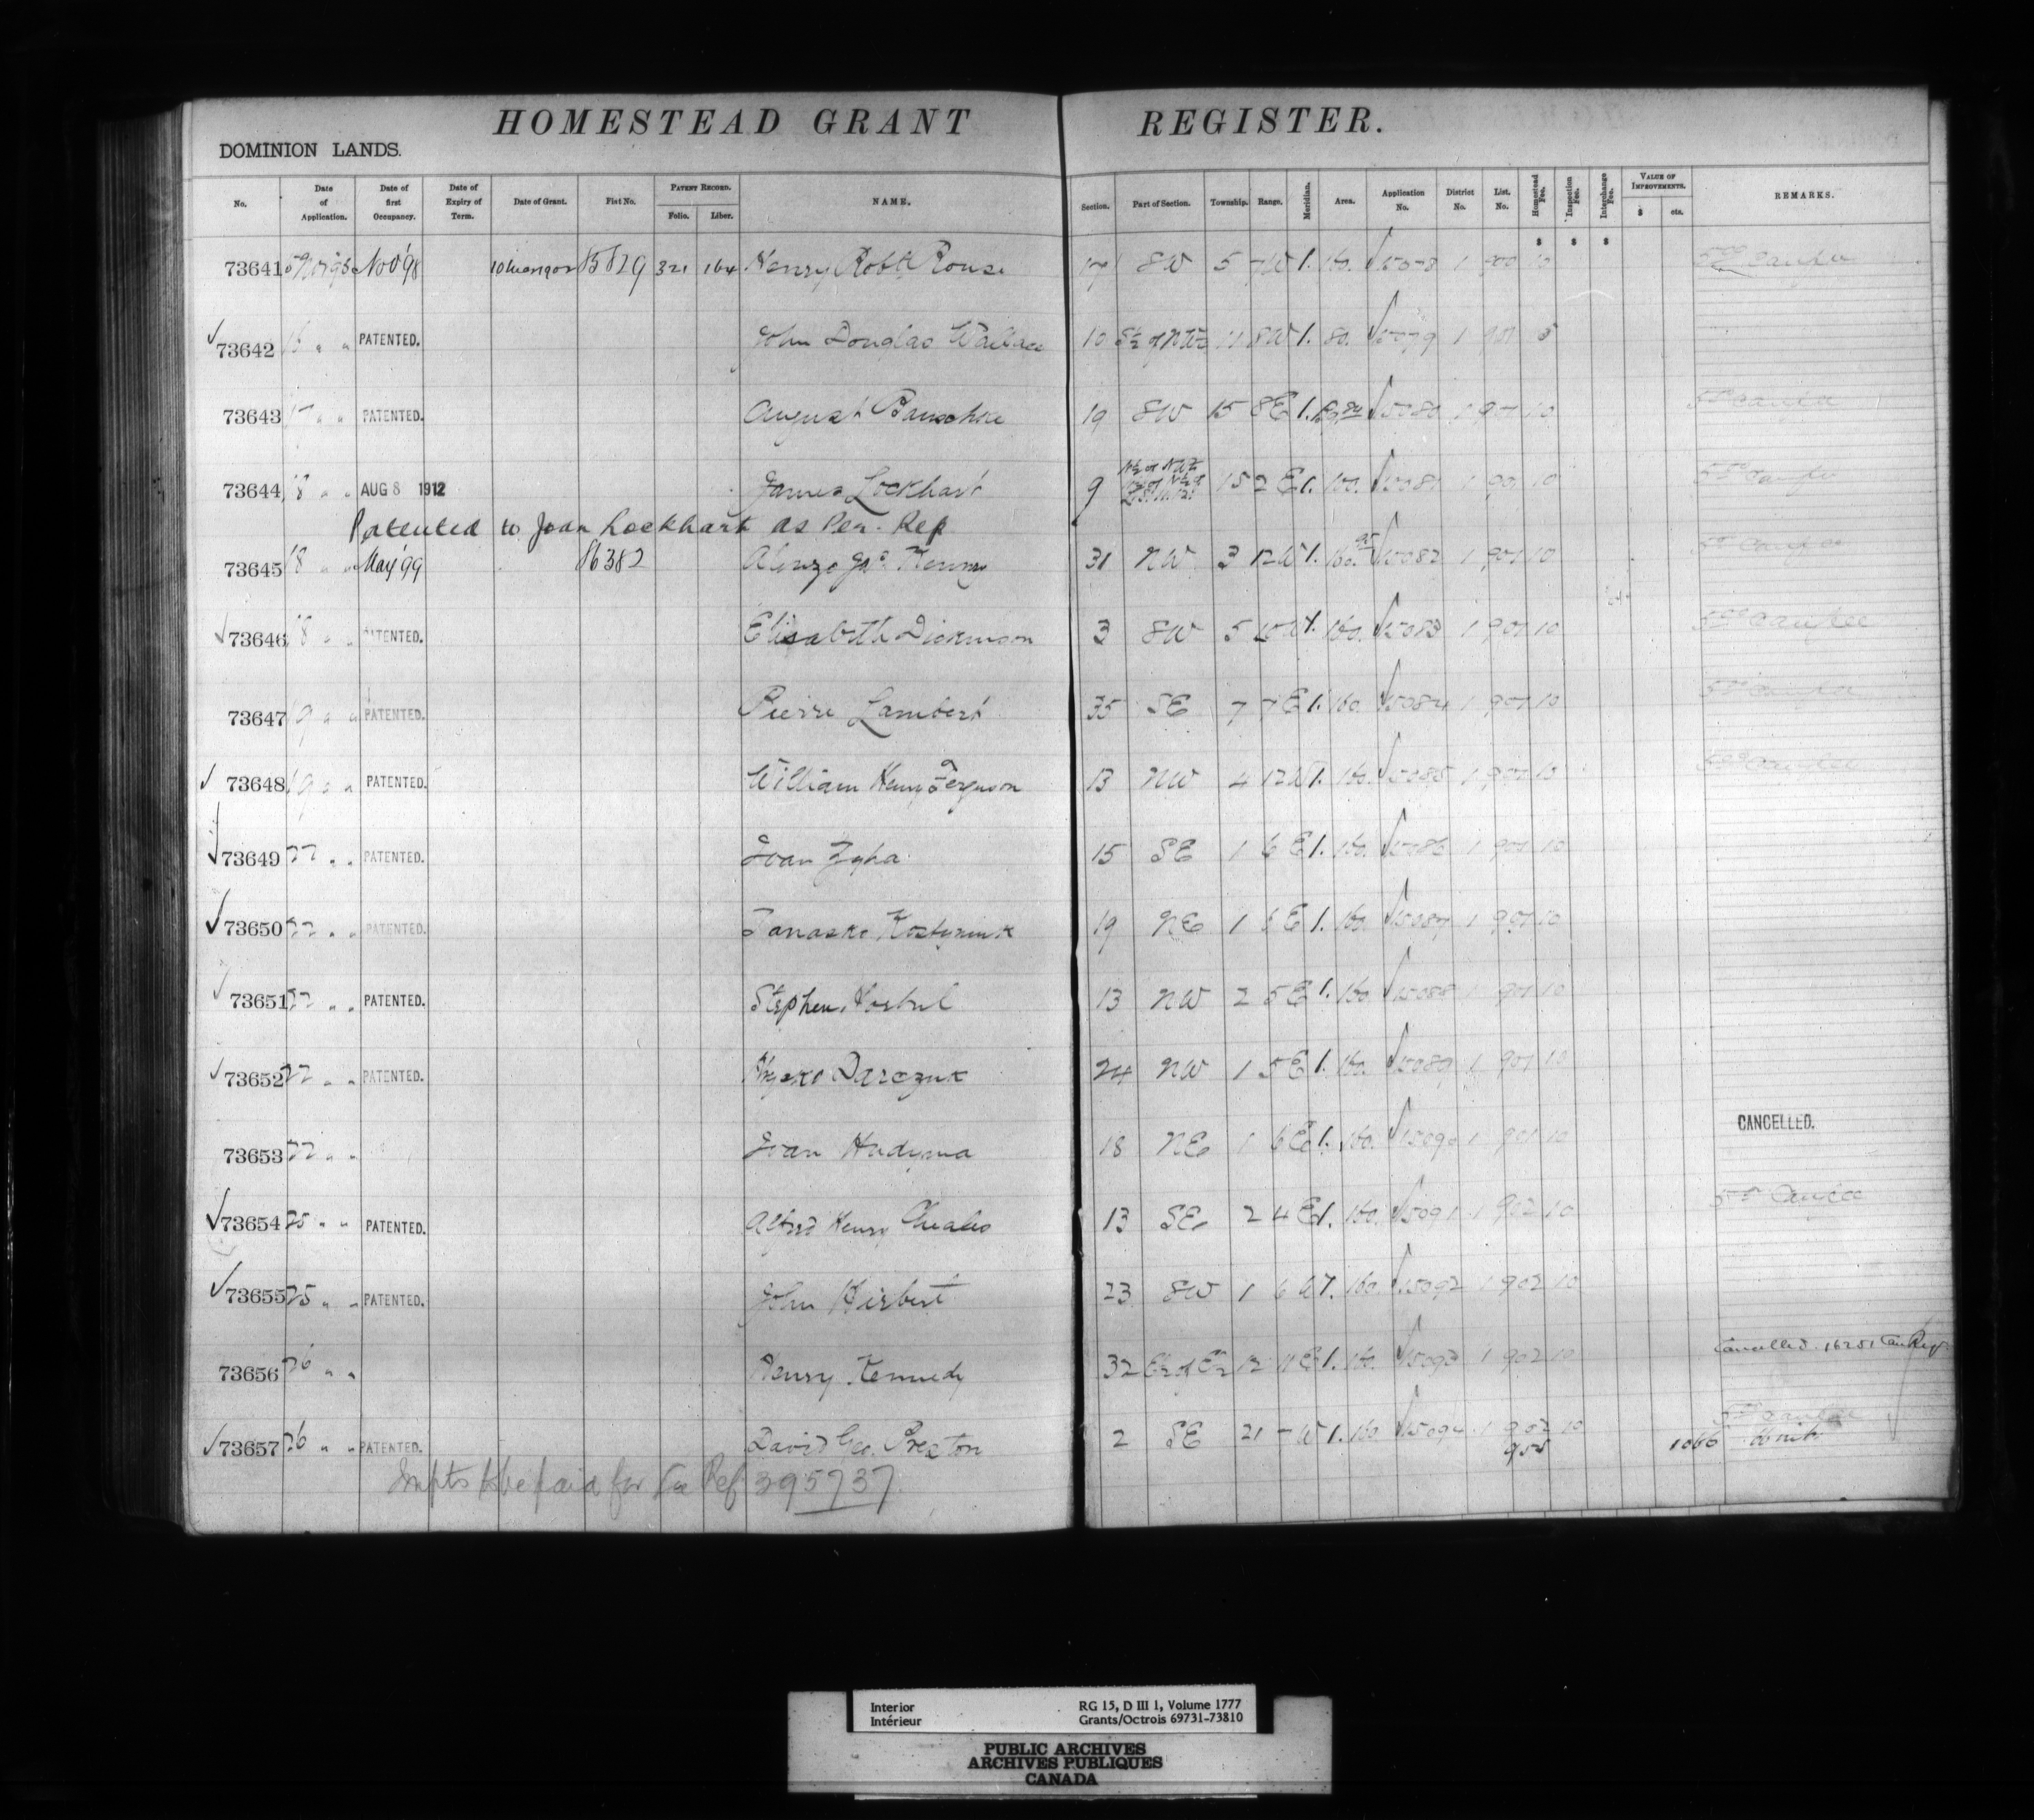 HOMESTEAD GRANT REGISTER.
DOMINION LANDS.
No. Date of Application. Date of first Occupancy. Date of Expiry of Term. Date of Grant. Fiat No. PATENT RECORD. Folio. Liber. NAME. Section. Part of Section. Township. Range. Meridian. Area. Application No. District No. List. No. Homestead Fee. Inspection Fee. Interchange Fee. VALUE OF IMPROVEMENTS. $ cts. REMARKS.
$ $ $
73641 Nov 98 85829 321 164 Henry Robt Rouse 17 SW 5 7 W 1. 160. 15078 1 900 10
73642 16 " " PATENTED. John Douglas Wallace 10 S½ of NW¼ 11 8 W 1. 80. 15079 1 901 5
73643 17 " " PATENTED. August 19 SW 15 8 E 1. 15080 1 901 10
73644 18 " " AUG 8 1912 James Lockhart 9 15 2 E 1. 160. 15081 1 901 10
Patented to Joan Lockhart as Per. Rep
73645 18 " " May '99 86382 Alonzo Jas. 31 NW 3 12 W 1. 15082 1 901 10
73646 18 " " PATENTED. Elisabeth Dickinson 3 SW 5 10 W 1. 160. 15083 1 901 10
73647 19 " " PATENTED. Pierre Lambert 35 SE 7 7 E 1. 160. 15084 1 901 10
73648 19 " " PATENTED. William Henry Ferguson 13 NW 4 12 W 1. 160. 15085 1 901 10
73649 22 " " PATENTED. Ivan Zyha 15 SE 1 6 E 1. 160. 15086 1 901 10
73650 22 " " PATENTED. Tanasko 19 NE 1 6 E 1. 160. 15087 1 901 10
73651 22 " " PATENTED. Stephen 13 NW 2 5 E 1. 160. 15088 1 901 10
73652 22 " " PATENTED. Darczuk 24 NW 1 5 E 1. 160. 15089 1 901 10
73653 22 " " Ivan Hudyma 18 NE 1 6 E 1. 160. 15090 1 901 10 CANCELLED.
73654 25 " " PATENTED. Alfred Henry 13 SE 2 4 E 1. 160. 15091 1 902 10
73655 25 " " PATENTED. John Herbert 23 SW 1 6 W 1. 160. 15092 1 902 10
73656 26 " " Henry Kennedy 32 E½ of E½ 12 11 E 1. 160. 15093 1 902 10 Cancelled. 16251 Can Reg
73657 26 " " PATENTED. David Geo. Preston 2 SE 21 7 W 1. 160. 15094 1 902 10
Impts to be paid for See Ref 395737
Interior
Intérieur
RG 15, D III 1, Volume 1777
Grants/Octrois 69731-73810
PUBLIC ARCHIVES
ARCHIVES PUBLIQUES
CANADA